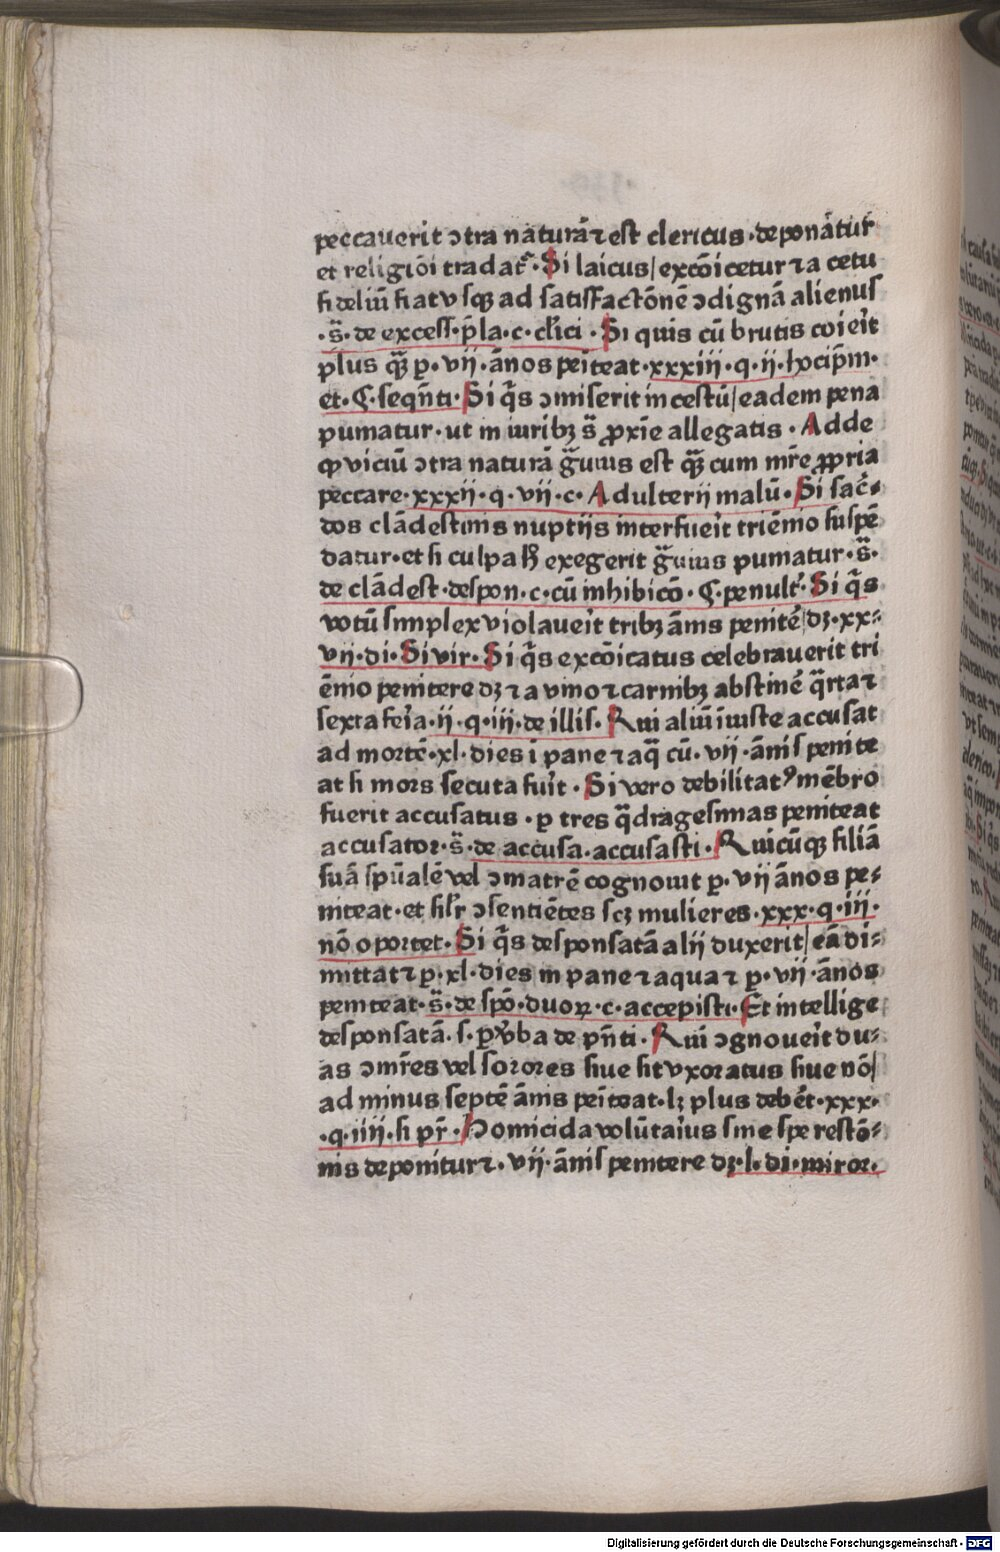 peccauerit ↄtra naturā ⁊ est clericus·deponātur̄
et religiōi tradat᷑·Si laicus/excōicetur ⁊ a cetu
fideliū fiat vsqꝫ ad satisfactōnē ↄdignā alienus
·s̄·de excess·p̄la·c·cl̄ici·Si quis cū brutis coieīt
plus qꝫ̄ ꝑ·vij·ānos peīteat·xxxiij·q·ij·hocip̄m·
et·ꞔ·seqn̄ti·Si q̄s ↄmiserit incestū/eadem pena
puniatur·ut in iuribꝫ s̄ ꝓxīe allegatis·Adde
ꝙ viciū ↄtra naturā ḡuius est qꝫ̄ cum mr̄e ꝓpria
peccare·xxxij·q·vij·c·Adulterij malū·Si sac̄-
dos clādestinis nuptijs interfueīt triēnio suspē
datur·et si culpa ħ exegerit ḡuius puniatur·s̄·
de clādest·despon·c·cū inhibicō·ꞔ·penult᷑·Si q̄s
votū simplex violaueīt tribꝫ ānis penitē/dꝫ·xx-
vij·di·Si vir·Si q̄s excōicatus celebrauerit tri
ēnio penitere dꝫ ⁊ a vino ⁊ carnibꝫ abstinē q̄rta ⁊
sexta feīa·ij·q·iij·de illis·Qui aliū iniuste accusat
ad mortē·xl·dies ī pane ⁊ aq̄ cū·vij·ānis penite
at si mors secuta fuīt·Si vero debilitatꝰ mēbro
fuerit accusatus·ꝑ tres q̄dragesimas peniteat
accusator·s̄·de accusa·accusasti·Quicūqꝫ filiā
suā spūalē vel ↄmatrē cognouit ꝑ·vij ānos pe-
niteat·et sil̄r ↄsentiētes scꝫ mulieres·xxx·q·iij·
nō oportet·Si q̄s desponsatā alij duxerit/eā di-
mittat ⁊ ꝑ·xl·dies in pane ⁊ aqua ⁊ ꝑ·vij·ānos
peniteat·s̄·de spō·duoꝝ·c·accepisti·Et intellige
desponsatā·s·ꝑ v̄ba de pn̄ti·Qui ↄgnoueīt du-
as ↄmr̄es vel sorores siue sit vxoratus siue nō/
ad minus septē ānis peīteat·lꝫ plus debēt·xxx·
·q·iiij·si pr̄·Homicida volūtaīus sine spe restō-
nis deponitur ⁊·vij·ānis penitere dꝫ·l·di·miror.
Digitalisierung gefördert durch die Deutsche Forschungsgemeinschaft - DFG